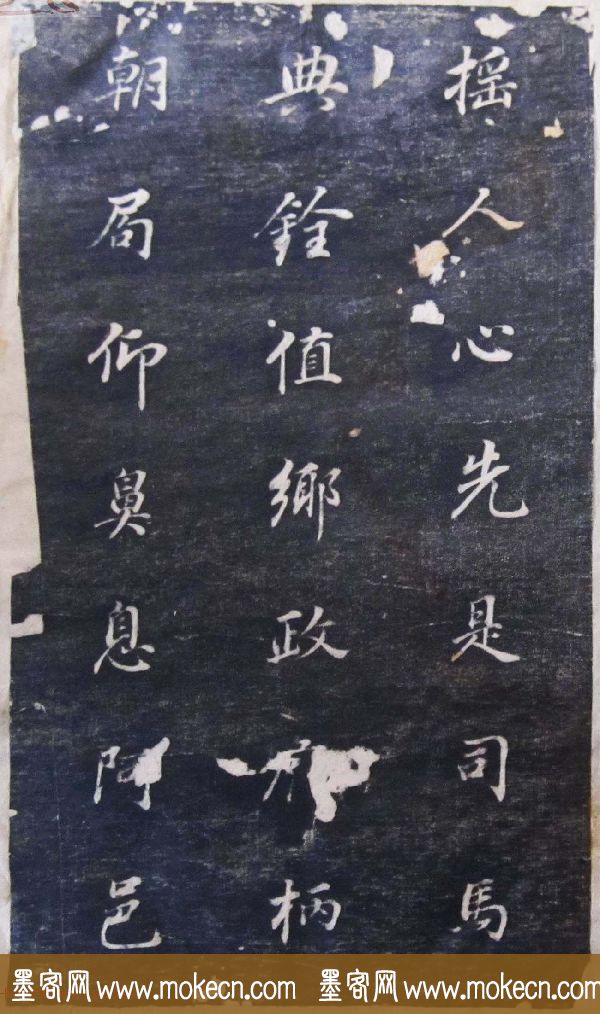 搖人心先是司馬
典銓值鄉政柄
朝局仰鼻息阿邑
墨客网 www.mokecn.com 墨客网 www.mokecn.com